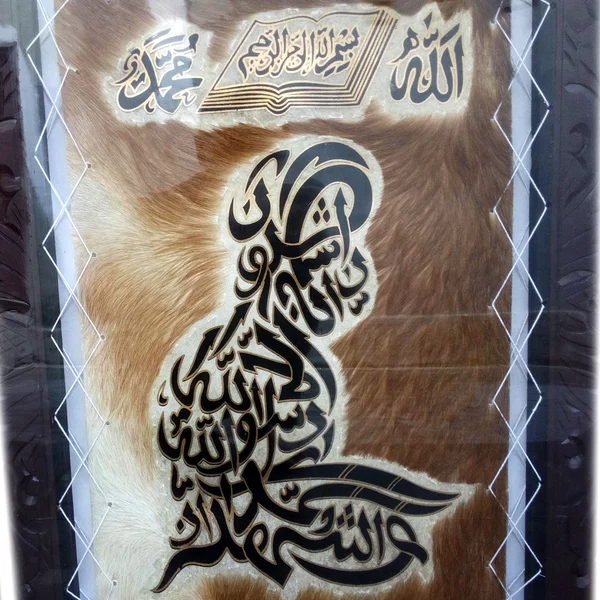 الله بسم الله الرحمن الرحيم محمد
اشهد ان لا اله الا الله واشهد ان محمدا رسول الله